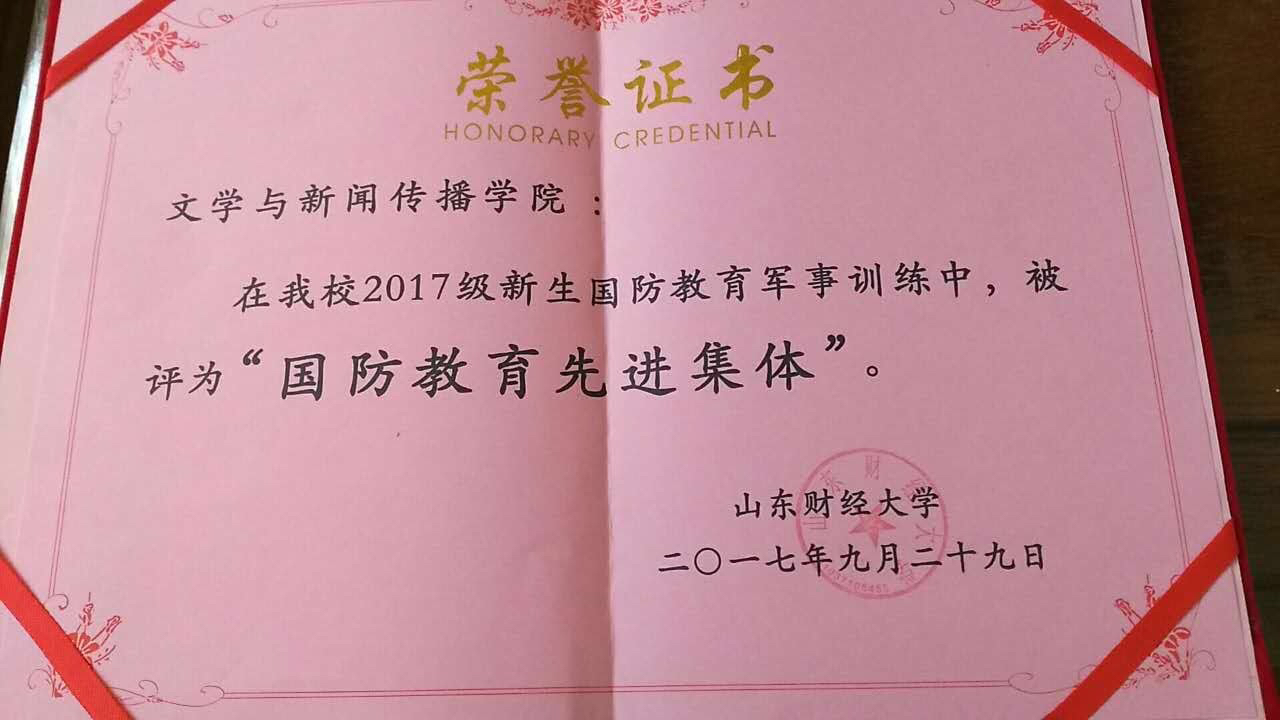 荣誉证书
HONORARY CREDENTIAL
文学与新闻传播学院：
在我校2017级新生国防教育军事训练中，被
评为“国防教育先进集体”。
山东财经大学
二〇一七年九月二十九日
山东财经大学